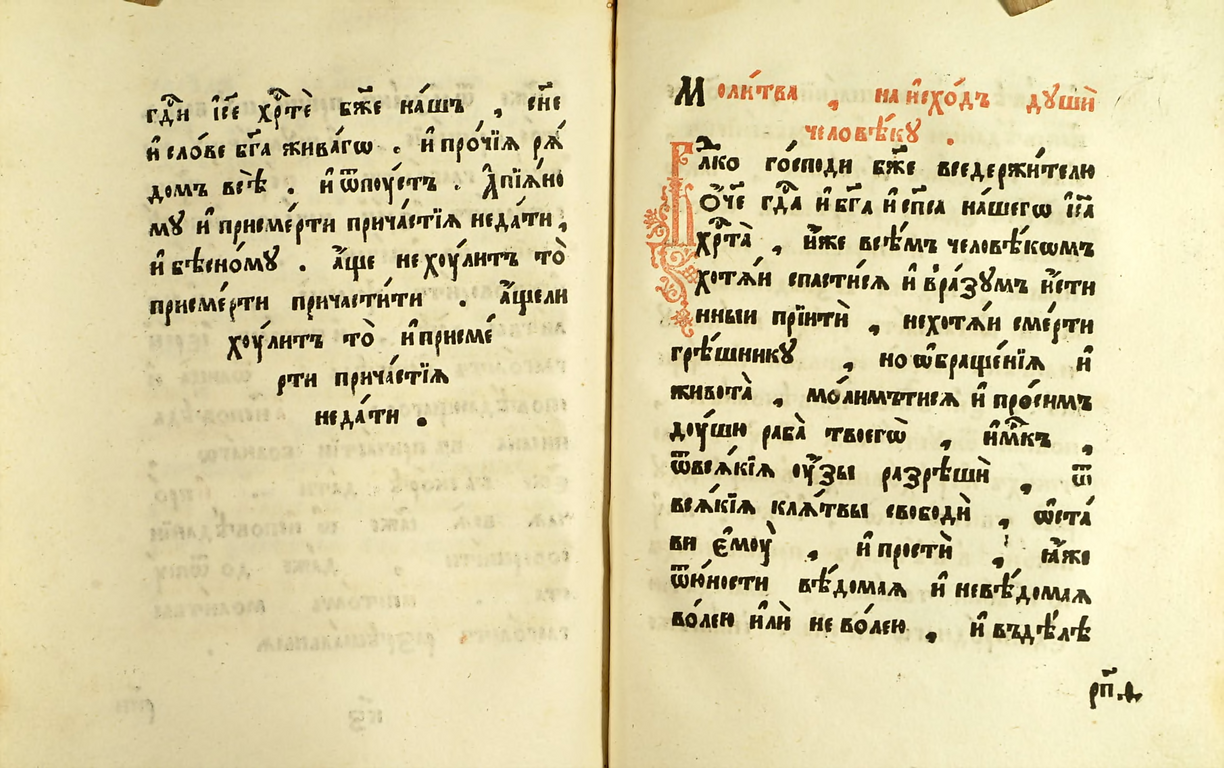 гдⷭ҇и і҆се хрⷭ҇тѐ бж҃е на́шъ , сн҃е
и҆ сло́ве бг҃а жива́гѡ . и҆ про́чїѧ рѧ́
домъ всѐ . и҆ ѿпоу́стъ . а҆ пїѧ́но
мꙋ и҆ присме́рти прича́стїѧ неда́ти ,
и҆ бѣ́сно́мꙋ . а҆́ще не хоу́литъ то̀
присме́рти причасти́ти . а҆́щели
хоу́литъ то̀ и҆ присме́
рти прича́стїѧ
неда́ти .
Моли́тва , на и҆схо́дъ дꙋшѝ
человѣ́кꙋ .
Влⷣко го́споди бж҃е вседержи́телю
о҆́ч҃е гдⷭ҇а и҆ бг҃а и҆ сп҃са на́шегѡ і҆с҃а
хрⷭ҇та̀ , и҆́же всѣ́мъ человѣ́кѡмъ
хотѧ́и спасти́сѧ и҆ в̾ра́зꙋмъ и҆́сти
нныи прїитѝ , нехотѧ́и сме́рти
грѣ́шникꙋ , но ѡ҆браще́нїѧ и҆
живота̀ , мо́лимътисѧ и҆ про́симъ
доу́шю раба̀ твоегѡ̀ , и҆мⷬ҇къ ,
ѿвсѧ́кїѧ оу҆́зы разрѣшѝ , ѿ
всѧ́кїѧ клѧ́твы свободѝ , ѡ҆ста́
ви є҆моу̀ , и҆ простѝ , ꙗ҆́же
ѿю҆́ности вѣ́домаѧ и҆ невѣ́домаѧ
во́лею и҆лѝ не во́лею , и҆ въдѣ́лѣ
рп҃.а.